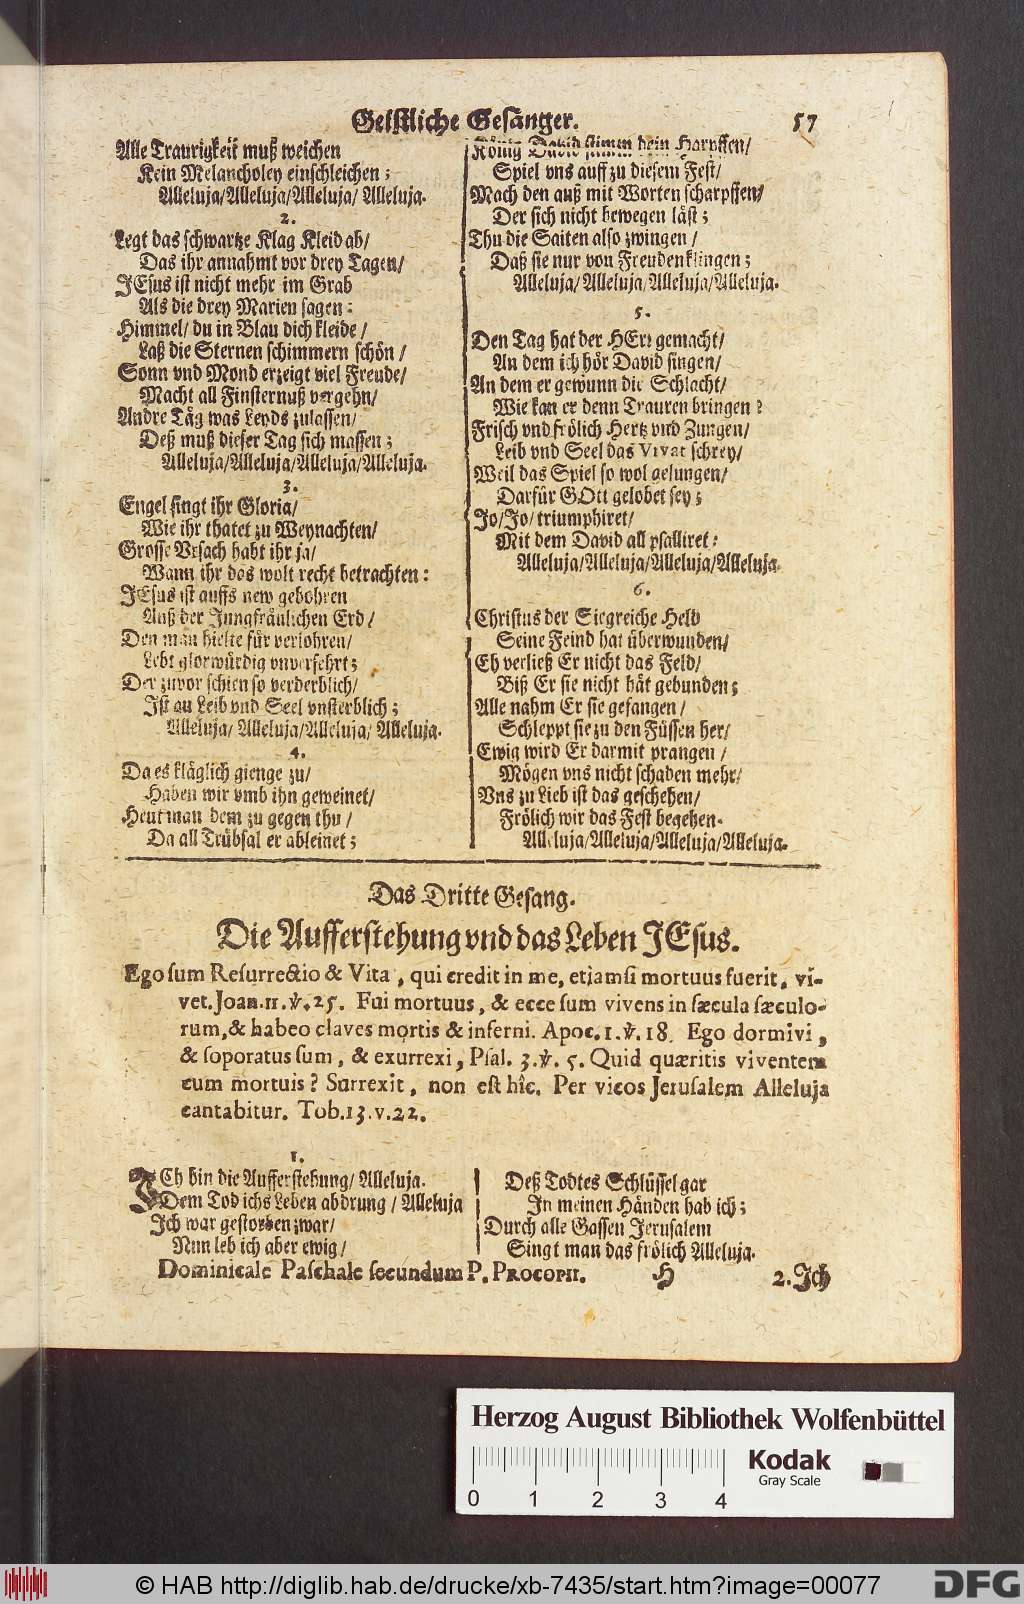 Geistliche Gesänger. 57
Alle Traurigkeit muß weichen
Kein Melancholey einschleichen;
Alleluja/Alleluja/Alleluja/ Alleluja.
2.
Legt das schwartze Klag Kleid ab/
Das ihr annahmt vor drey Tagen/
JEsus ist nicht mehr im Grab
Als die drey Marien sagen:
Himmel/ du in Blau dich kleide/
Laß die Sternen schimmern schön/
Sonn vnd Mond erzeigt viel Freude/
Macht all Finsternuß vergehn/
Andre Täg was Leyds zulassen/
Deß muß dieser Tag sich massen;
Alleluja/Alleluja/Alleluja/Alleluja.
3.
Engel singt ihr Gloria/
Wie ihr thatet zu Weynachten/
Grosse Vrsach habt ihr ja/
Wann ihr das wolt recht betrachten:
JEsus ist auffs new gebohren
Auß der Jungfräulichen Erd/
Den man hielte für verlohren/
Lebt glorwürdig vnversehrt;
Der zuvor schien so verderblich/
Ist an Leib vnd Seel vnsterblich;
Alleluja/ Alleluja/Alleluja/ Alleluja.
4.
Da es kläglich gienge zu/
Haben wir vmb ihn geweinet/
Heut man dem zu gegen thu/
Da all Trübsal er ableinet;
König David stimm dein Harpffen/
Spiel vns auff zu diesem Fest/
Mach den auß mit Worten scharpffen/
Der sich nicht bewegen läst;
Thu die Saiten also zwingen/
Daß sie nur von Freuden klingen;
Alleluja/ Alleluja/Alleluja/Alleluja.
5.
Den Tag hat der HErr gemacht/
An dem ich hör David singen/
An dem er gewunn die Schlacht/
Wie kan er denn Trauren bringen?
Frisch vnd frölich Hertz vnd Zungen/
Leib vnd Seel das Vivat schrey/
Weil das Spiel so wol gelungen/
Darfür GOtt gelobet sey;
Jo/Jo/ triumphiret/
Mit dem David all psalliret:
Alleluja/Alleluja/Alleluja/Alleluja.
6.
Christus der Siegreiche Held
Seine Feind hat überwunden/
Eh verließ Er nicht das Feld/
Biß Er sie nicht hät gebunden;
Alle nahm Er sie gefangen/
Schleppt sie zu den Füssen her/
Ewig wird Er darmit prangen/
Mögen vns nicht schaden mehr/
Vns zu Lieb ist das geschehen/
Frölich wir das Fest begehen.
Alleluja/Alleluja/Alleluja/Alleluja.
Das Dritte Gesang.
Die Aufferstehung vnd das Leben JEsus.
Ego sum Resurrectio & Vita, qui credit in me, etiamsi mortuus fuerit, vi-
vet. Joan. 11. ℣. 25. Fui mortuus, & ecce sum vivens in sæcula sæculo-
rum, & habeo claves mortis & inferni. Apoc. 1. ℣. 18. Ego dormivi,
& soporatus sum, & exurrexi, Psal. 3. ℣. 5. Quid quæritis viventem
cum mortuis? Surrexit, non est hîc. Per vicos Jerusalem Alleluja
cantabitur. Tob. 13. v. 22.
1.
ICh bin die Aufferstehung/ Alleluja.
Dem Tod ichs Leben abdrung/ Alleluja
Ich war gestorben zwar/
Nun leb ich aber ewig/
Deß Todtes Schlüssel gar
In meinen Händen hab ich;
Durch alle Gassen Jerusalem
Singt man das frölich Alleluja.
Dominicale Paschale secundum P. PROCOPII. H 2. Ich
Herzog August Bibliothek Wolfenbüttel
Kodak
Gray Scale
0 1 2 3 4
© HAB http://diglib.hab.de/drucke/xb-7435/start.htm?image=00077
DFG